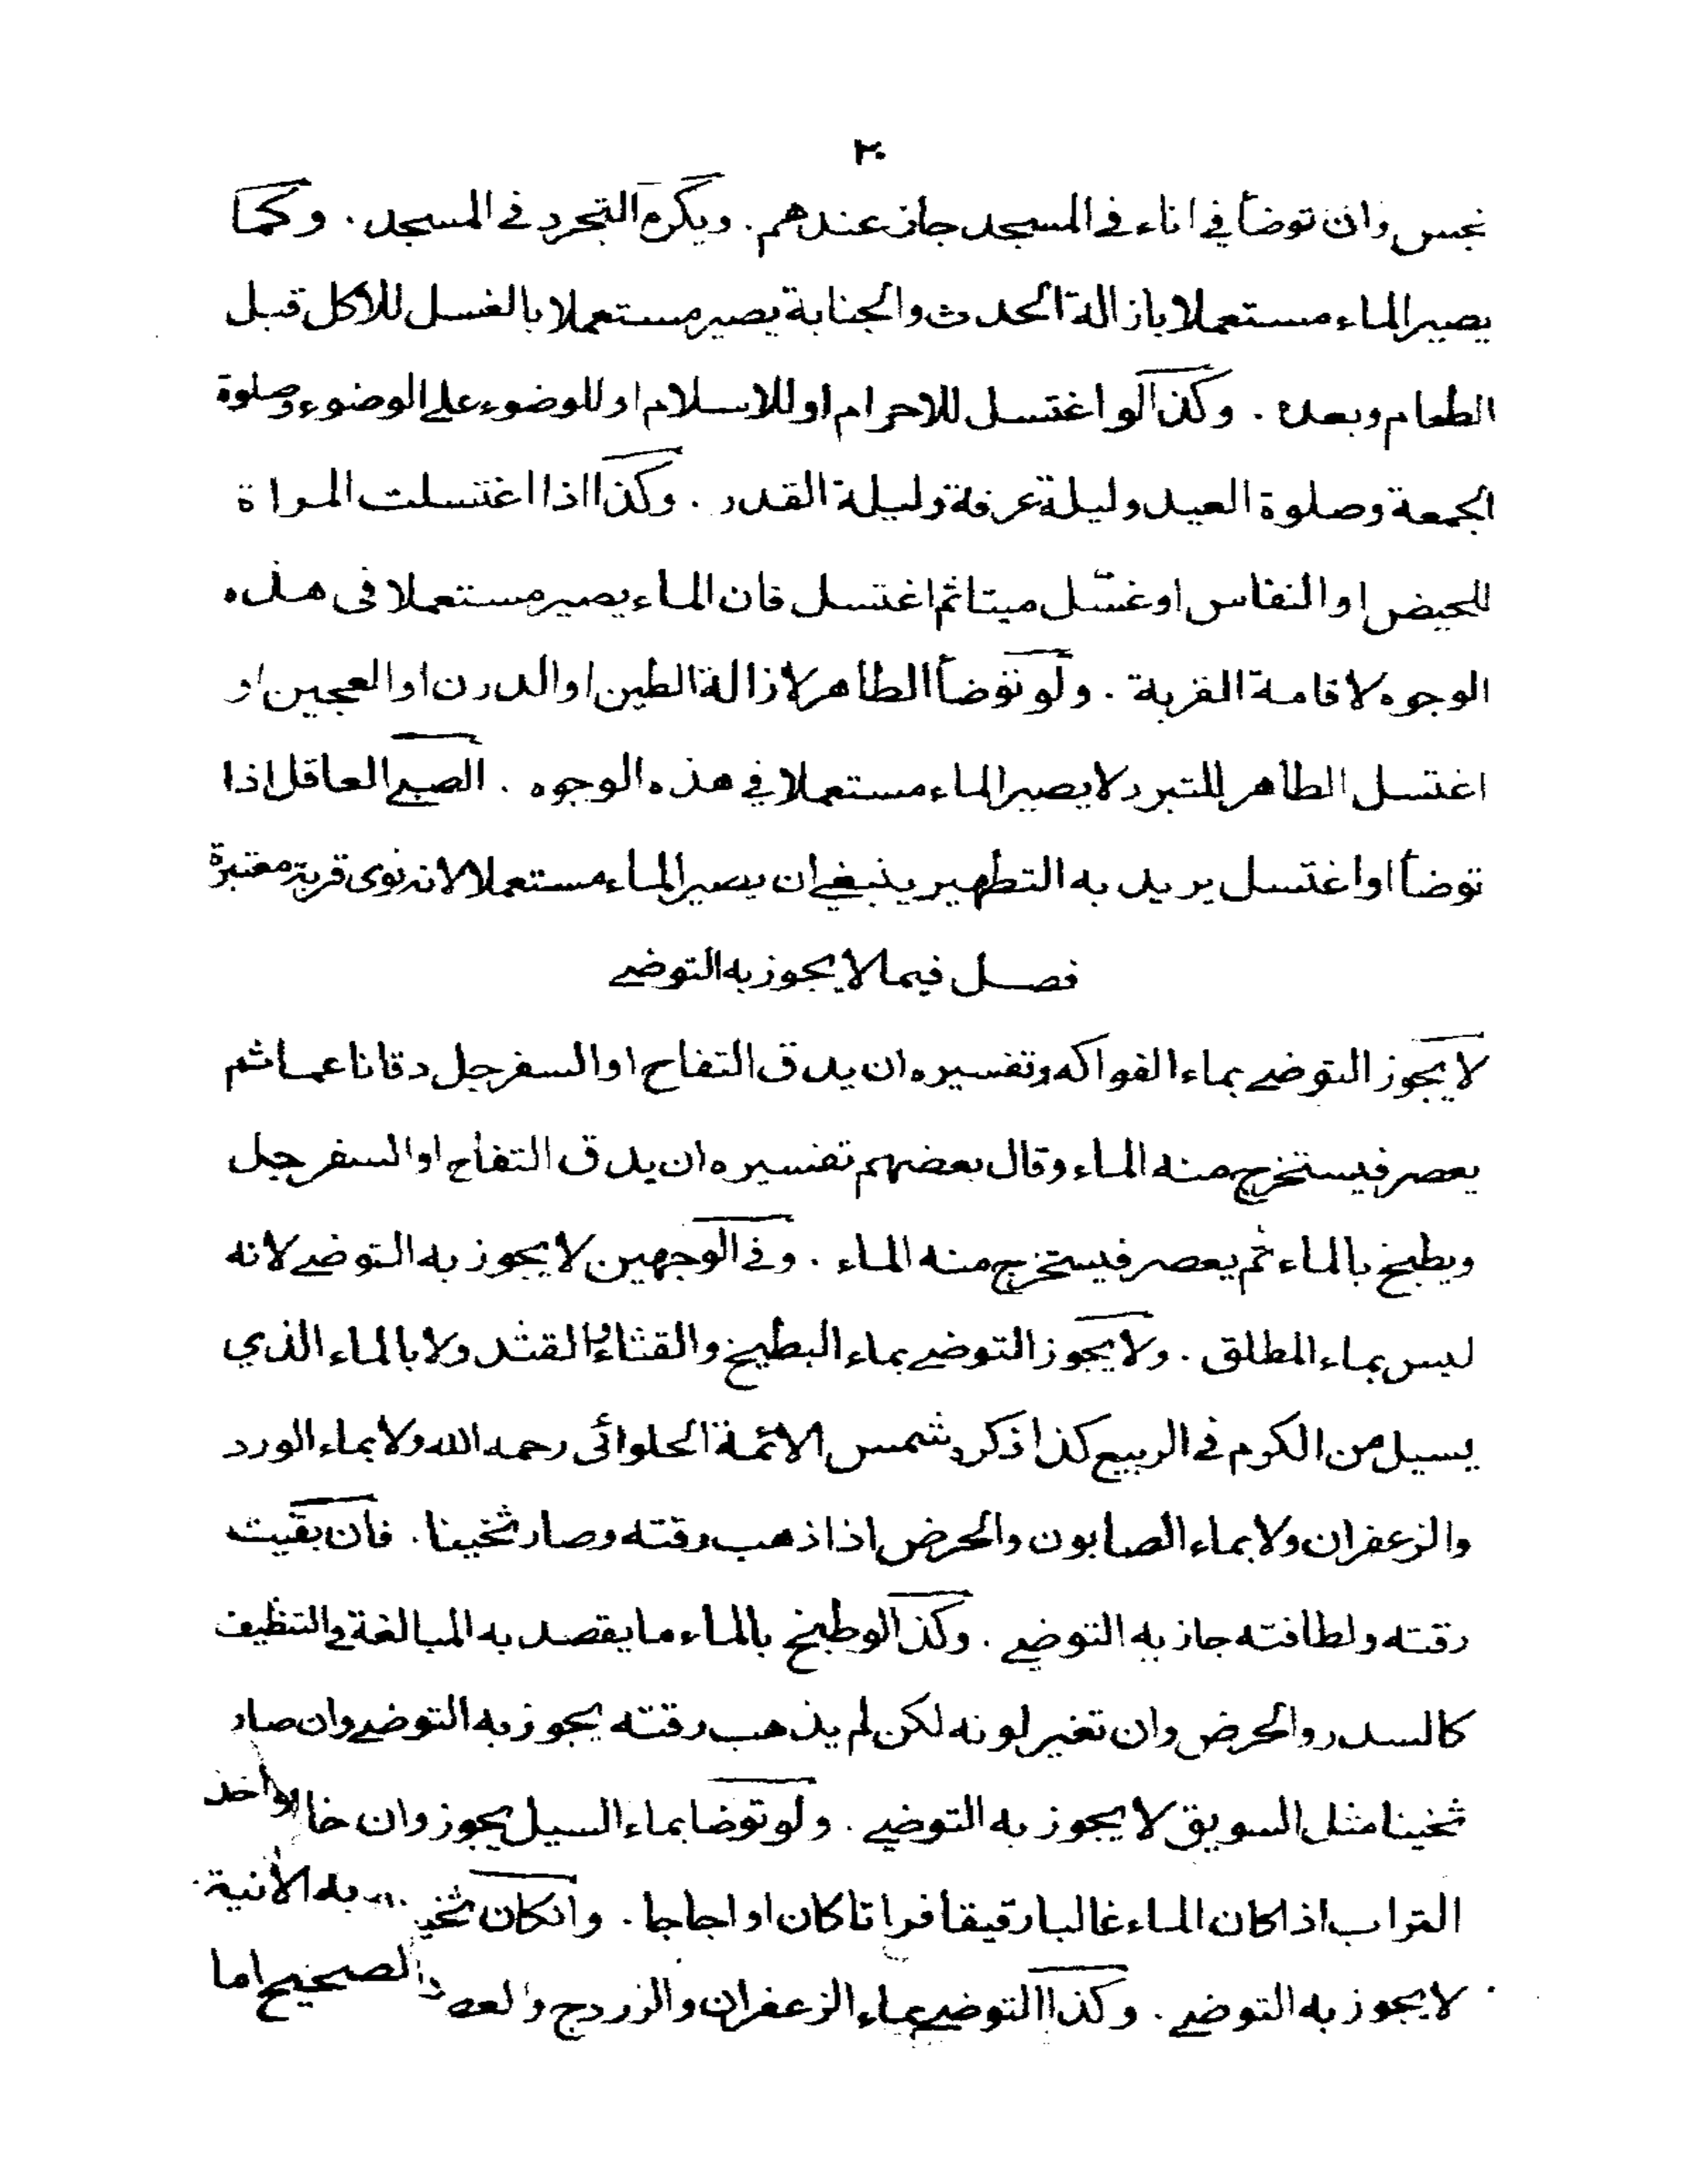 ٢٠
نجس وان توضأ في اناء في المسجد جاز عندهم. ويكره التجرد في المسجد. وكما
يصير الماء مستعملا بازالة الحدث والجنابة يصير مستعملا بالغسل للاكل قبل
الطعام وبعده. وكذا لو اغتسل للاحرام او للاسلام او للوضوء على الوضوء وصلوة
الجمعة وصلوة العيد وليلة عرفة وليلة القدر. وكذا اذا اغتسلت المراة
للحيض او النفاس او غسّل ميتا ثم اغتسل فان الماء يصير مستعملا فى هذه
الوجوه لاقامة القربة. ولو توضأ الطاهر لازالة الطين او الدرن او العجين او
اغتسل الطاهر للتبرد لا يصير الماء مستعملا في هذه الوجوه. الصبي العاقل اذا
توضأ او اغتسل يريد به التطهير ينبغي ان يصير الماء مستعملا لانه نوى قربة معتبرة
فصل فيما لا يجوز به التوضي
لا يجوز التوضي بماء الفواكه وتفسيره ان يدق التفاح او السفرجل دقا ناعما ثم
يعصر فيستخرج منه الماء وقال بعضهم تفسيره ان يدق التفاح او السفرجل
ويطبخ بالماء ثم يعصر فيستخرج منه الماء. وفي الوجهين لا يجوز به التوضي لانه
ليس بماء المطلق. ولا يجوز التوضي بماء البطيخ والقثاء والقثد ولا بالماء الذي
يسيل من الكرم في الربيع كذا ذكره شمس الائمة الحلوائى رحمه الله ولا بماء الورد
والزعفران ولا بماء الصابون والحرض اذا ذهب رقته وصار ثخينا. فان بقيت
رقته ولطافته جاز به التوضي. وكذا لو طبخ بالماء ما يقصد به المبالغة في التنظيف
كالسدر والحرض وان تغير لونه لكن لم يذهب رقته يجوز به التوضي وان صار
ثخينا مثل السويق لا يجوز به التوضي. ولو توضا بماء السيل يجوز وان
التراب اذا كان الماء غالبا رقيقا فراتا كان او اجاجا. وانكان به الآنية
لا يجوز به التوضي. وكذا التوضي بماء الزعفران والزردج الصحيح اما